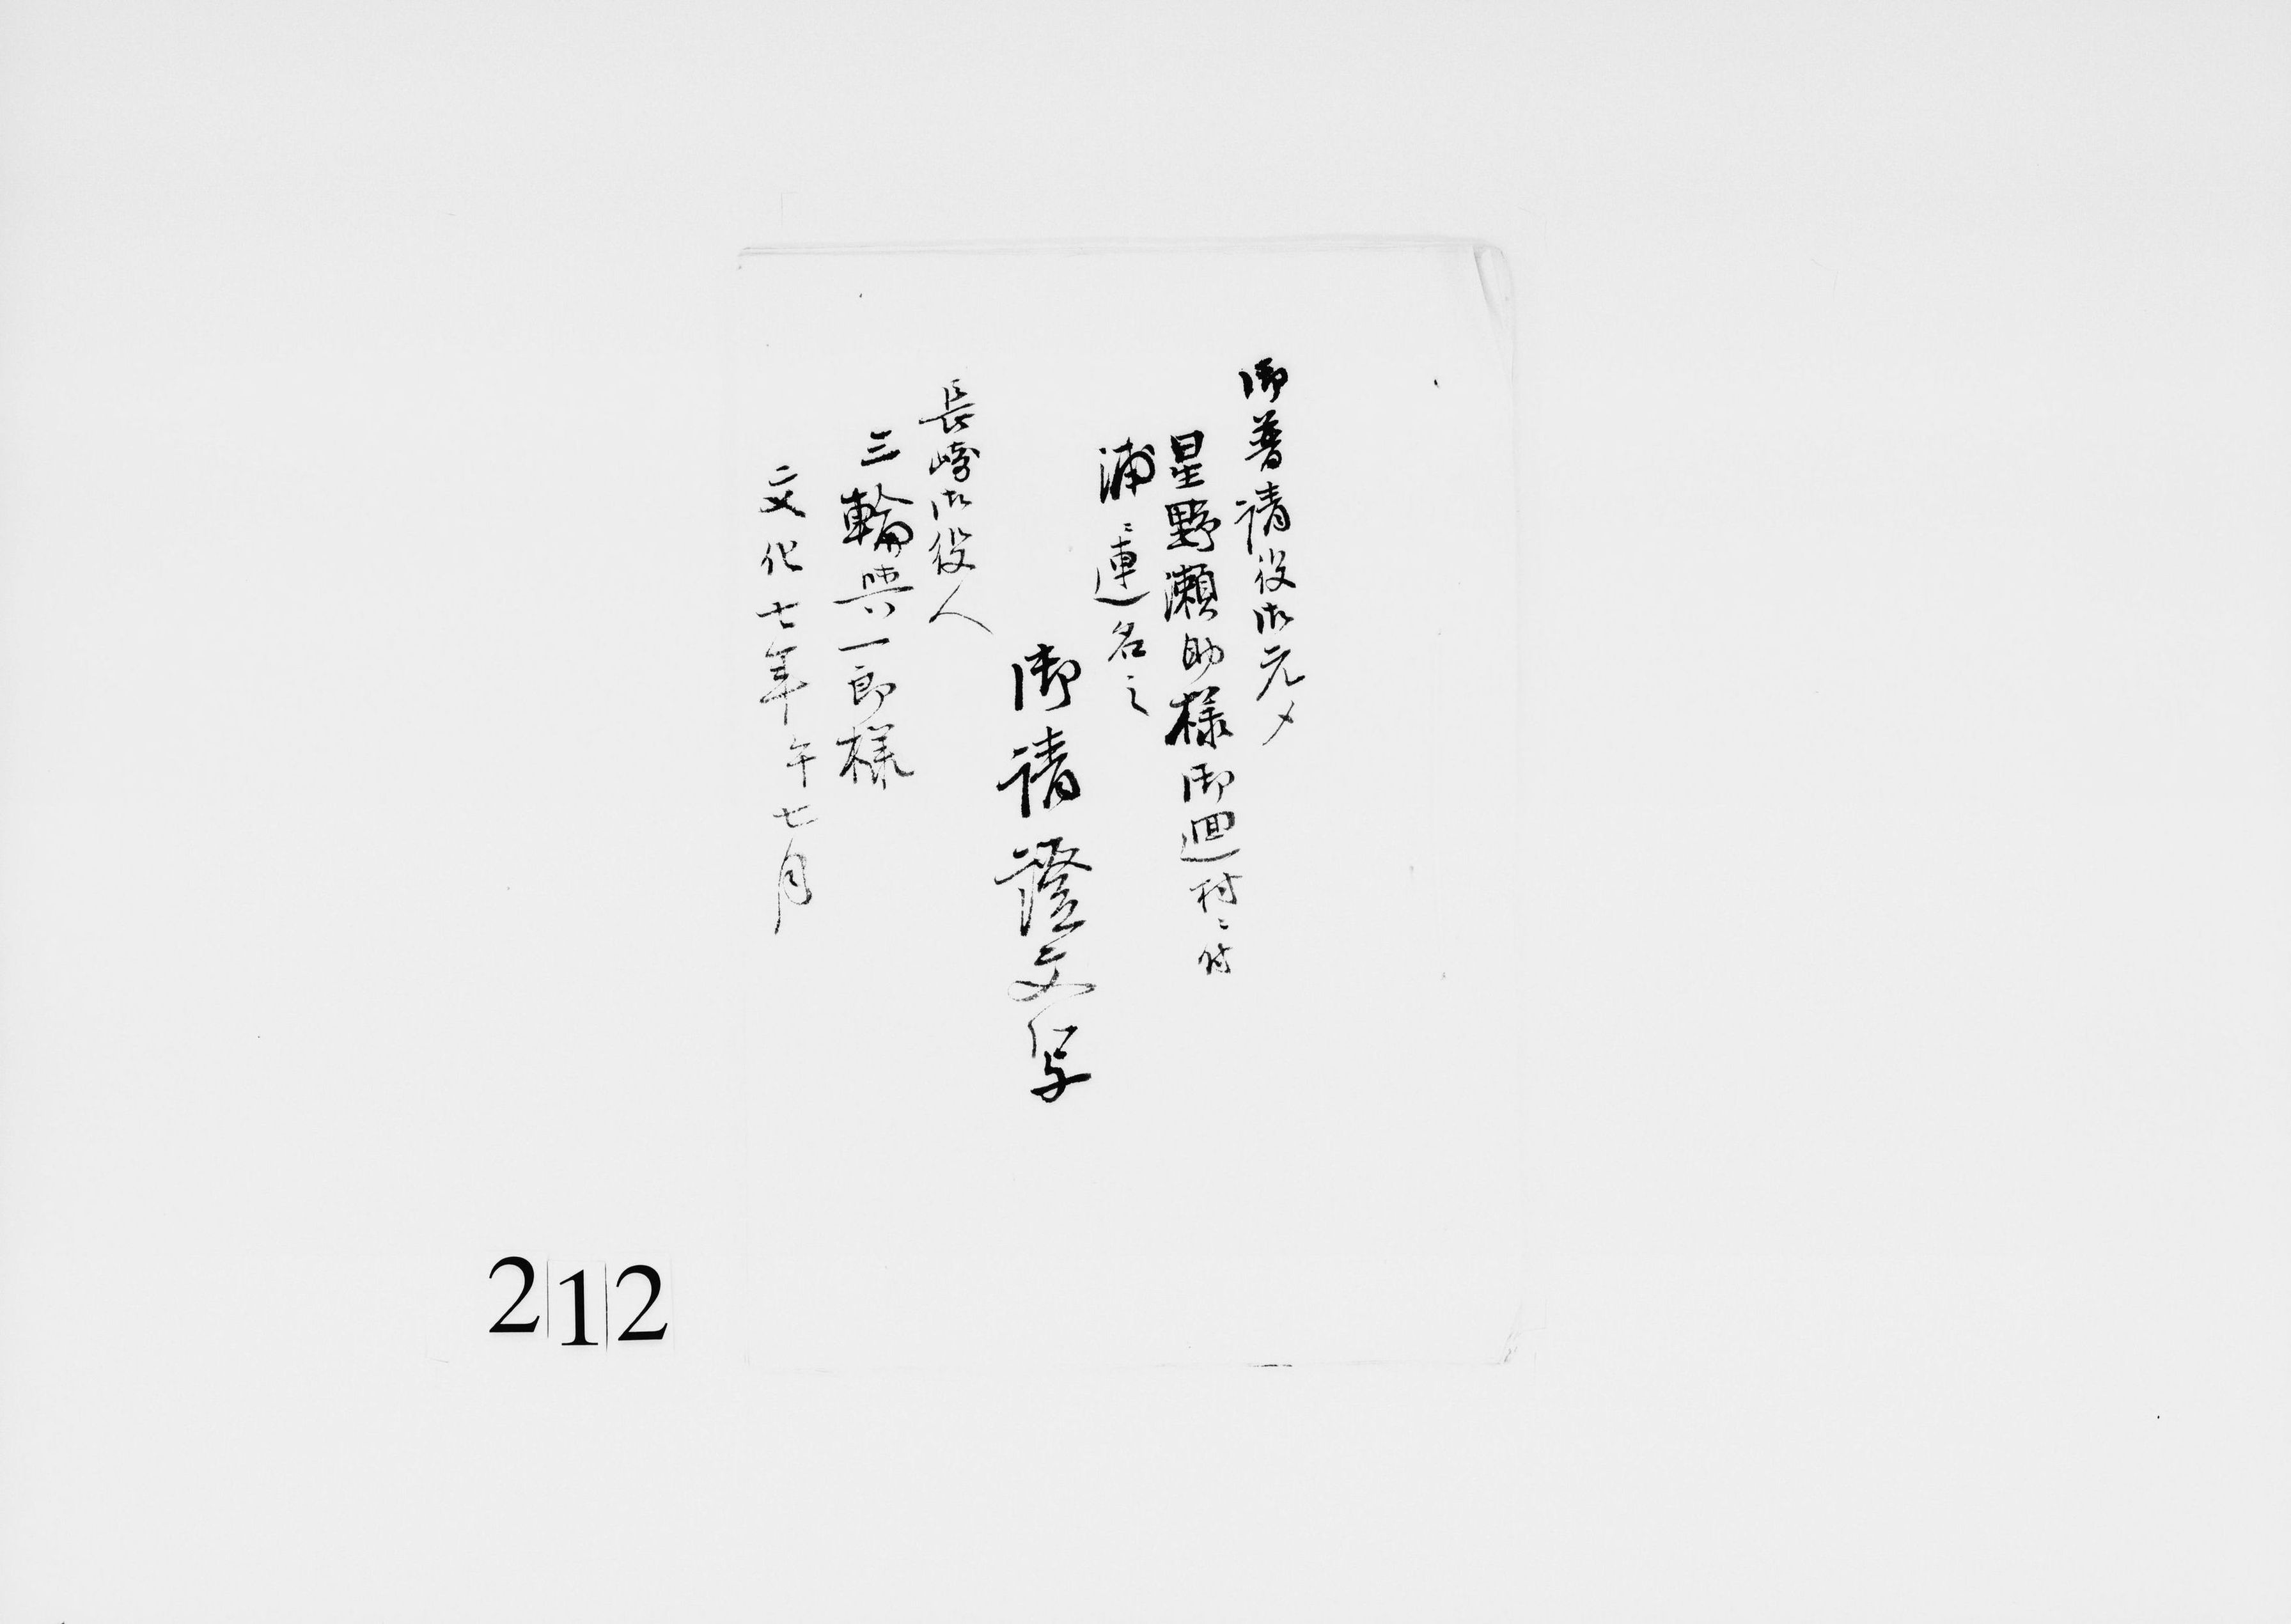 御普請役御元〆
星野瀬助様御廻村ニ付
浦々連名之
御請證文写
長崎御役人
三輪與一郎様
文化七年午七月
212